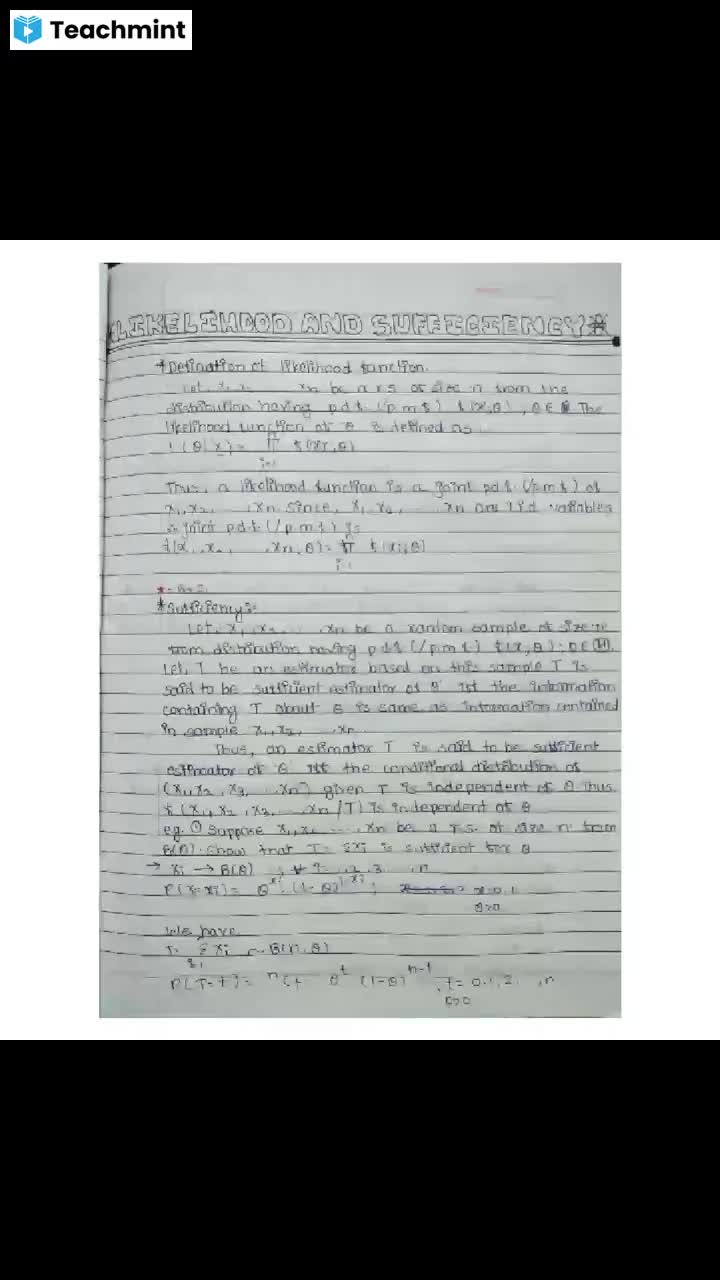 Teachmint
*LIKELIHOOD AND SUFFICIENCY*
*Defination of likelihood function.
Let, x1 x2 xn be a r.s of size n from the
distribution having p.d.f. (/p.m.f) f(x,θ), θ∈ The
likelihood function of θ is defined as
L(θ|x) = π f(xi,θ)
i=1
Thus, a likelihood function is a joint pdf (/p.m.f) of
x1,x2, ..., xn since, x1 x2, ... xn are iid variables
joint p.d.f (/p.m.f) is
f(x1, x2, ..., xn,θ) = π f(xi,θ)
i=1
*Sufficiency:-
Let, x1, x2, ..., xn be a random sample of size n
from distribution having p.d.f (/p.m.f) f(x,θ); θ∈Ⓗ.
Let, T be an estimator based on this sample T is
said to be sufficient estimator of θ iff the information
containing T about θ is same as information contained
in sample x1,x2, ..., xn
Thus, an estimator T is said to be sufficient
estimator of θ iff the conditional distribution of
(x1,x2,x3, ... xn) given T is independent of θ thus
f(x1,x2,x3, ... xn/T) is independent of θ
eg. ① Suppose x1,x2 ..., xn be a r.s. of size n from
B(θ). Show that T= Σxi is sufficient for θ
→ xi → B(θ) ; ∀ i= 1,2,3, n
P(x=xi) = θ^xi (1-θ)^1-xi ; x=0,1
θ>0
We have
T= Σ xi ~ B(n,θ)
P(T=t) = nCt θ^t (1-θ)^n-t , t= 0,1,2. ,n
θ>0